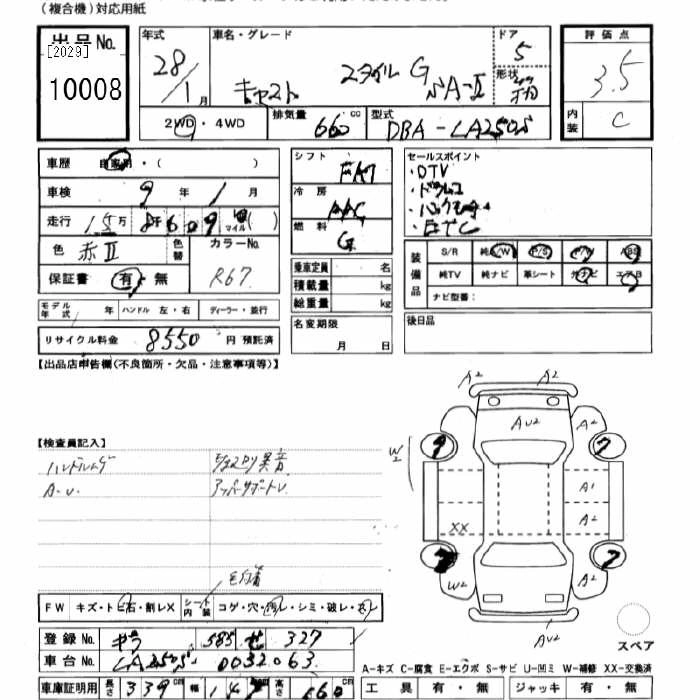 (複合機)対応用紙
出品No.
[2029]
10008
年式
28/1月
車名・グレード
キャスト スタイル G SA-Ⅱ
ドア
5
形状
2WD・4WD
排気量
660 cc
型式
DBA-LA250S
評価点
3.5
内装
C
車歴 自家用・( )
車検 9年 1月
走行 15万 8千609 マイル( )
色 赤Ⅱ
色替
カラーNo.
R67
保証書 有・無
モデル年式 年 ハンドル 左・右 ディーラー・並行
リサイクル料金 8550 円 預託済
シフト
FAT
冷房
AAC
燃料
G
乗車定員 名
積載量 kg
総重量 kg
名変期限
月 日
セールスポイント
・DTV
・ドラレコ
・バックモニター
・ETC
装備品
S/R 純A/W P/S P/W ABS
純TV 純ナビ 革シート 外ナビ エアB
ナビ型番:
後日品
【出品店申告欄(不良箇所・欠品・注意事項等)】
【検査員記入】
ハンドルスレ
A.U.
アッパーサポートU.
毛付着
FW キズ・トビ石・割レX シート内装 コゲ・穴・汚レ・シミ・破レ・スレ
登録No. 585 せ 327
車台No. LA250S-0032063
車庫証明用 長さ 339 cm 幅 147 cm 高さ 160 cm
A2 A2
AU2
A2
W2
9 7
A1
A2
XX
7
W2
A2
AU2
スペア
A-キズ C-腐食 E-エクボ S-サビ U-凹ミ W-補修 XX-交換済
工具 有・無 ジャッキ 有・無